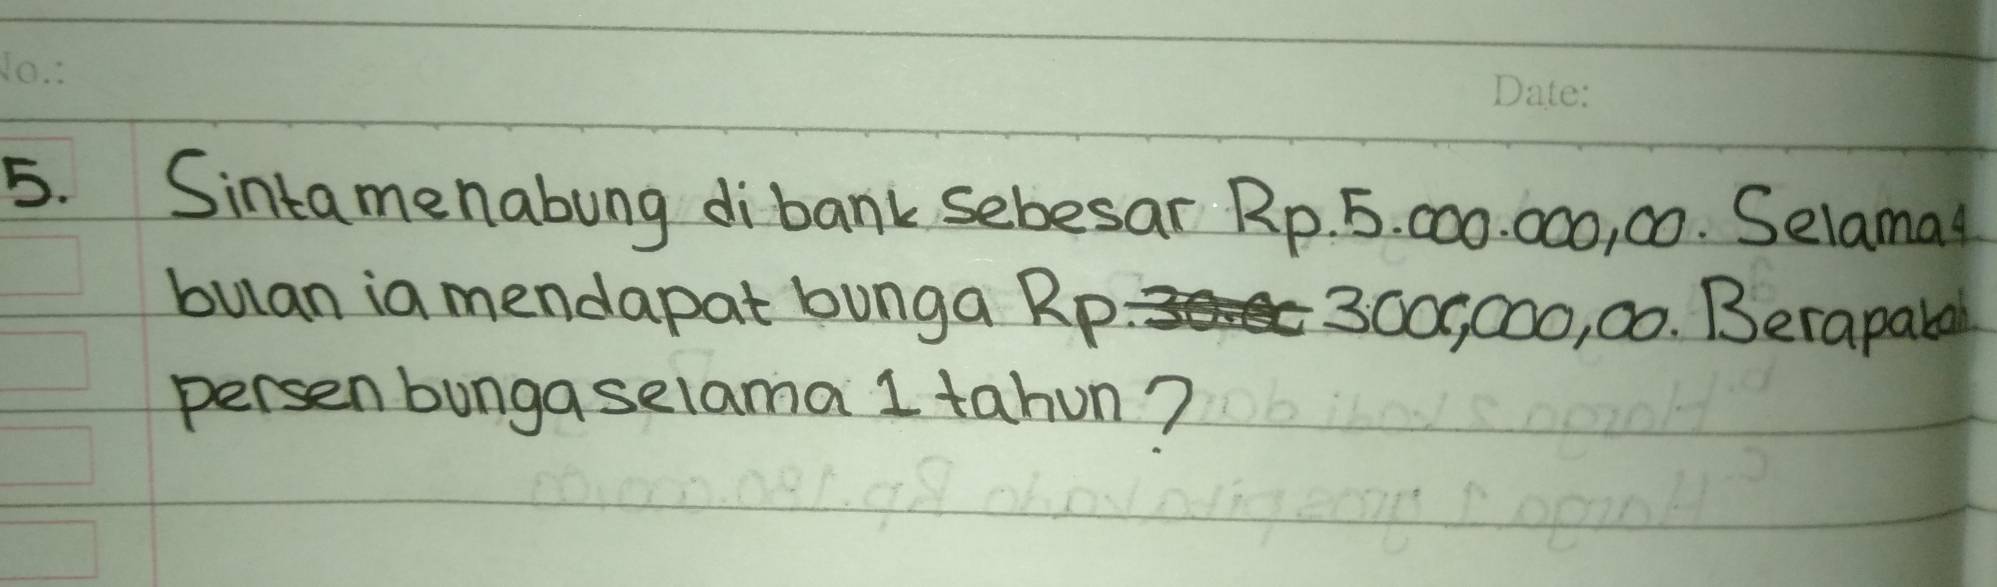 No.:
Date:
5. Sinta menabung di bank sebesar Rp.5.000.000,00. Selama 4
bulan ia mendapat bunga Rp. 300.000,00. Berapakah
persen bunga selama 1 tahun?